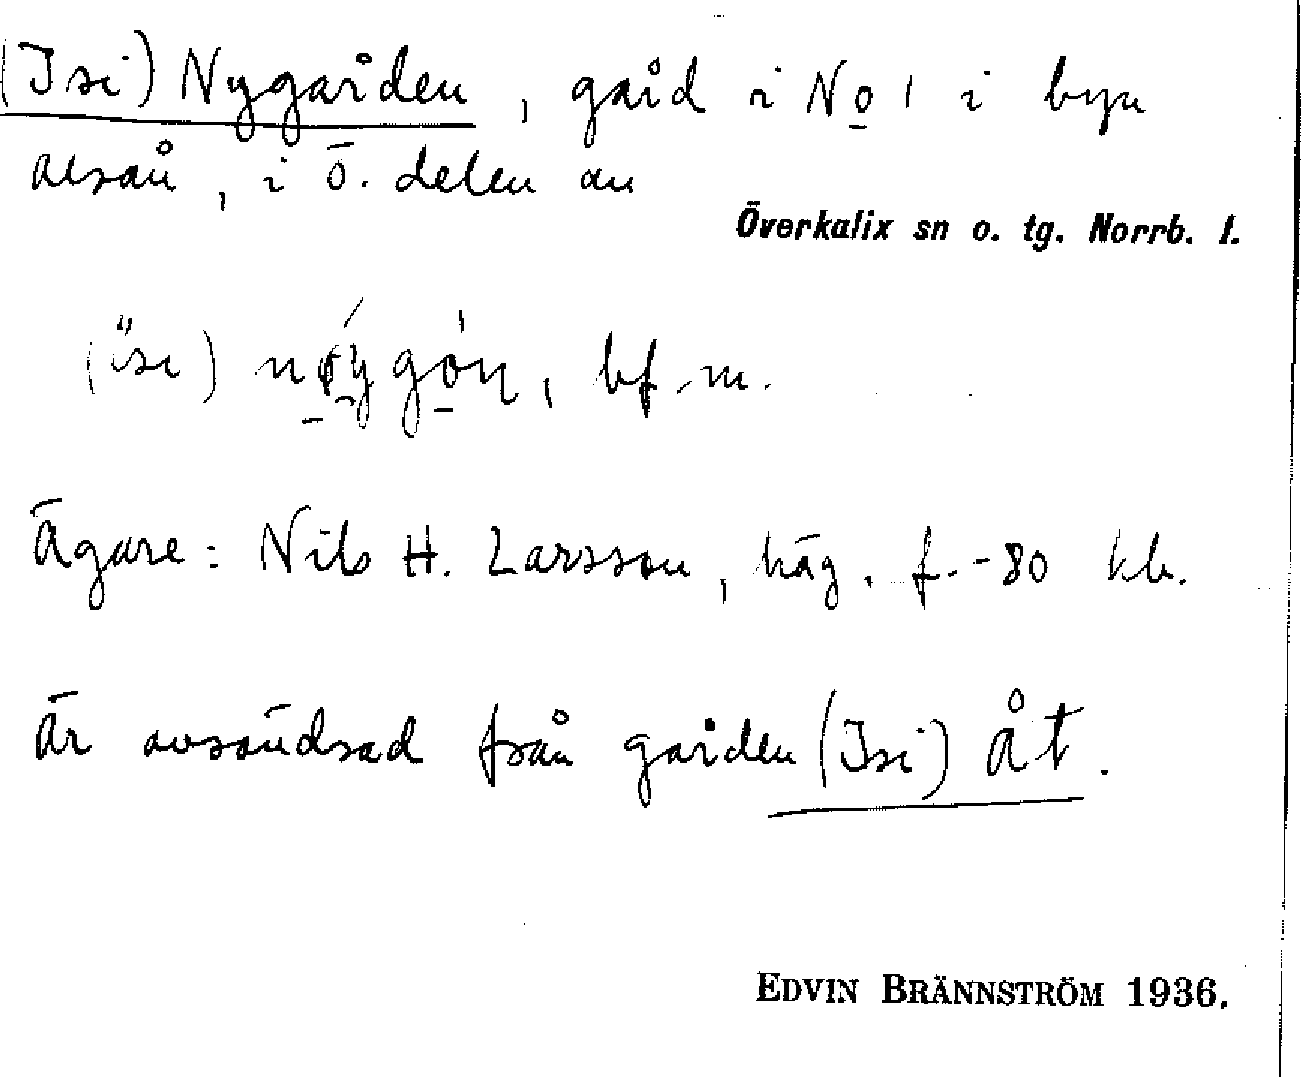 (Isi) Nygården, gård i No 1 i byn
Alsån, i ö. delen av
Överkalix sn o. tg. Norrb. l.
(ısı) nǿygón, bf. m.
Ägare: Nils H. Larsson, häg. f. -80 kh.
Är avsöndrad från gården (Isi) Åt.
EDVIN BRÄNNSTRÖM 1936.